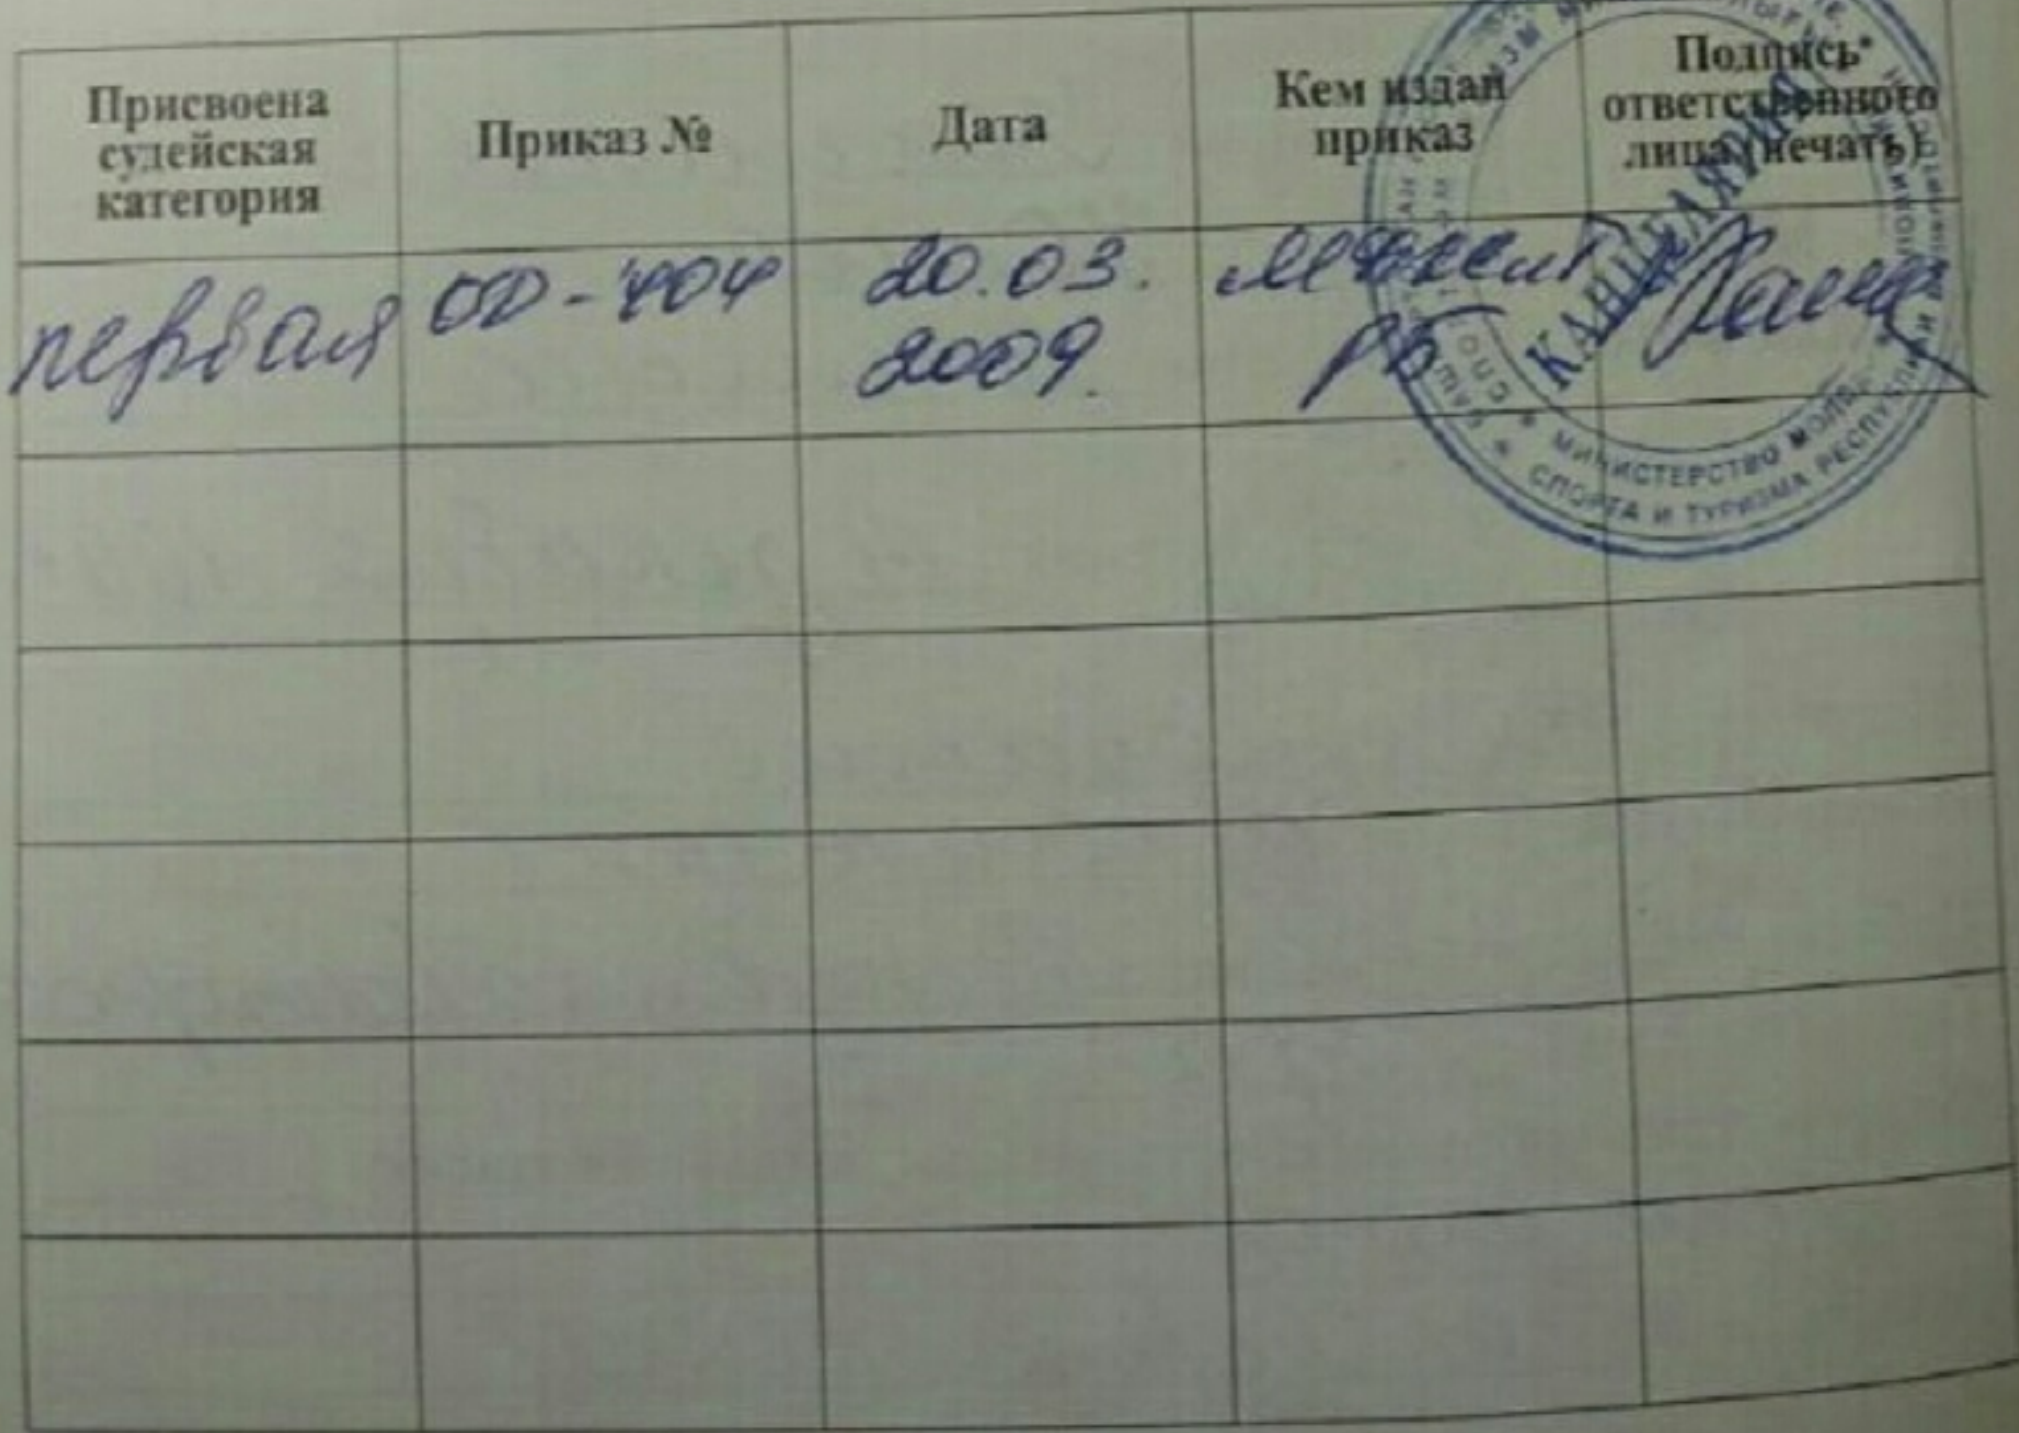 Присвоена
судейская
категория
Приказ №
Дата
Кем издан
приказ
Подпись*
ответственного
лица (печать)
первая
ОД-404
20.03.
2009.
РБ
КАНЦЕЛЯРИЯ
МИНИСТЕРСТВО
СПОРТА И ТУРИЗМА